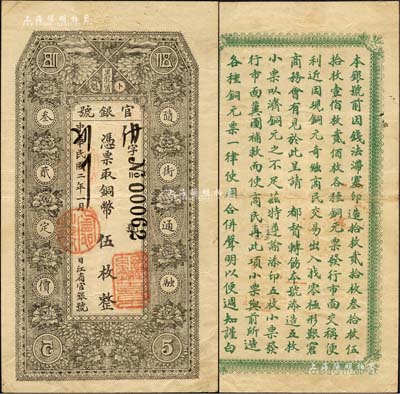 官銀號
隨街通融
字
No 00062
憑票取銅幣伍枚整
民國二年 月 日江省官銀號
叁貳定價
5
5
本銀號前因錢法滯塞印造拾枚貳拾枚叁拾枚伍
拾枚壹佰枚貳佰枚各種銅元票發行市面交稱便
利近因現銅元奇絀商民交易出入找零極形艱窘
商務會有見於此呈請 都督轉飭本號添造五枚
小票以濟銅元之不足茲特遵諭添印五枚小票發
行市面冀圖補救而便商民再此項小票與前所造
各種銅元票一律使用合併聲明以便週知謹白